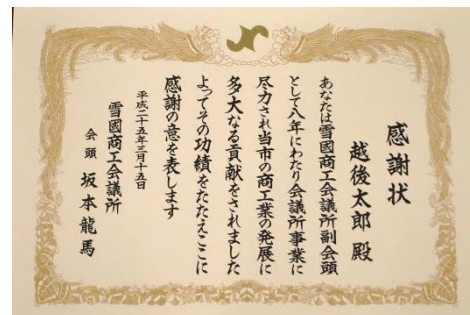 感謝状
越後太郎殿
あなたは雪國商工会議所副会頭
として八年にわたり会議所事業に
尽力され当市の商工業の発展に
多大なる貢献をされました
よってその功績をたたえここに
感謝の意を表します
平成二十五年三月十五日
雪國商工会議所
会頭 坂本龍馬